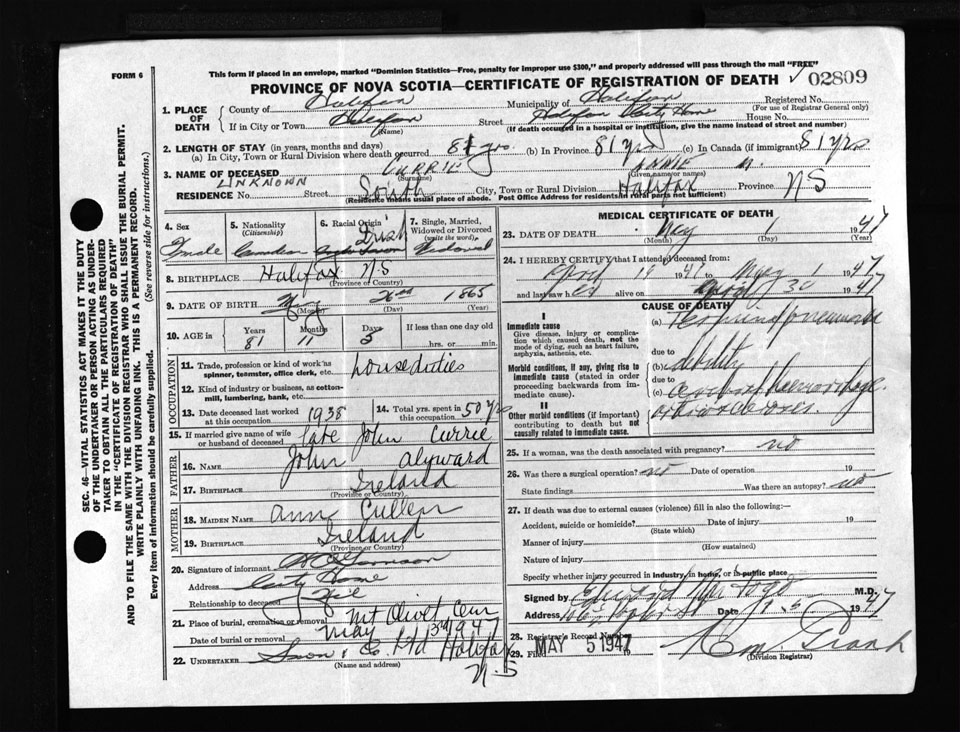 FORM 6
This form if placed in an envelope, marked "Dominion Statistics—Free, penalty for improper use $300," and properly addressed will pass through the mail "FREE"
PROVINCE OF NOVA SCOTIA—CERTIFICATE OF REGISTRATION OF DEATH ✓ 02809
1. PLACE OF DEATH County of Halifax Municipality of Halifax Registered No.
(For use of Registrar General only)
If in City or Town Halifax Street Halifax City Home House No.
(Name) (If death occurred in a hospital or institution, give the name instead of street and number)
2. LENGTH OF STAY (in years, months and days)
(a) In City, Town or Rural Division where death occurred 81 yrs. (b) In Province 81 yrs (c) In Canada (if immigrant) 81 yrs
3. NAME OF DECEASED CURRIE ANNIE M.
(Surname) (Given name or names)
RESIDENCE No. UNKNOWN Street South City, Town or Rural Division Halifax Province NS
(Residence means usual place of abode. Post Office Address for residents in rural parts not sufficient)
4. Sex Female
5. Nationality (Citizenship) Canadian
6. Racial Origin Irish
7. Single, Married, Widowed or Divorced (write the word) Widowed
8. BIRTHPLACE Halifax NS
9. DATE OF BIRTH 26th 1865
(Month) (Day) (Year)
10. AGE in Years Months Days If less than one day old
81 11 5 hrs. or min.
OCCUPATION
11. Trade, profession or kind of work as spinner, teamster, office clerk, etc. house duties
12. Kind of industry or business, as cotton-mill, lumbering, bank, etc.
13. Date deceased last worked at this occupation 1938
14. Total yrs. spent in this occupation 50 yrs
15. If married give name of wife or husband of deceased late John Currie
FATHER
16. NAME John Alyward
17. BIRTHPLACE Ireland
(Province or Country)
MOTHER
18. MAIDEN NAME Ann Cullen
19. BIRTHPLACE Ireland
(Province or Country)
20. Signature of informant
Address City Home
Relationship to deceased
21. Place of burial, cremation or removal Mt Olivet Cem
Date of burial or removal May 3rd 1947
22. UNDERTAKER Snow & Co. Ltd Halifax
(Name and address) N.S
MEDICAL CERTIFICATE OF DEATH
23. DATE OF DEATH May 1 1947
(Month) (Day)
24. I HEREBY CERTIFY that I attended deceased from:
April 19 1947 to May 1 1947
and last saw h er alive on April 30 1947
CAUSE OF DEATH
I
Immediate cause
Give disease, injury or complication which caused death, not the mode of dying, such as heart failure, asphyxia, asthenia, etc.
Morbid conditions, if any, giving rise to immediate cause (stated in order proceeding backwards from immediate cause).
II
Other morbid conditions (if important) contributing to death but not causally related to immediate cause.
(a) pneumonia
due to
(b) debility
due to
(c) haemorrhage
25. If a woman, was the death associated with pregnancy? no
26. Was there a surgical operation? no Date of operation 19
State findings Was there an autopsy? no
27. If death was due to external causes (violence) fill in also the following:—
Accident, suicide or homicide? Date of injury 19
(State which)
Manner of injury
(How sustained)
Nature of injury
Specify whether injury occurred in industry, in home, or in public place
Signed by M.D.
Address Date 1947
28. Registrar's Record Number
29. Filed MAY 5 1947
(Division Registrar)
SEC. 46—VITAL STATISTICS ACT MAKES IT THE DUTY
OF THE UNDERTAKER OR PERSON ACTING AS UNDER-
TAKER TO OBTAIN ALL THE PARTICULARS REQUIRED
IN THE "CERTIFICATE OF REGISTRATION OF DEATH"
AND TO FILE THE SAME WITH THE DIVISION REGISTRAR WHO SHALL ISSUE THE BURIAL PERMIT.
WRITE PLAINLY WITH UNFADING INK. THIS IS A PERMANENT RECORD.
Every item of information should be carefully supplied. (See reverse side for instructions.)